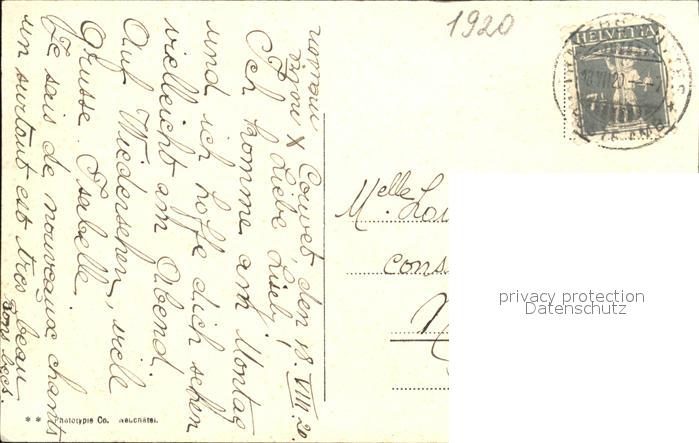 1920
HELVETIA
Couvet, den 18. VIII. 20.
Liebe Lisely!
Ich komme am Montag
und ich hoffe dich sehen
vielleicht am Abend.
Auf Wiedersehen, viele
Grüsse. Isabelle.
Je sais de nouveaux chants
un surtout est très beau
Bons becs.
Melle
cons
privacy protection
Datenschutz
** Phototypie Co. Neuchâtel.